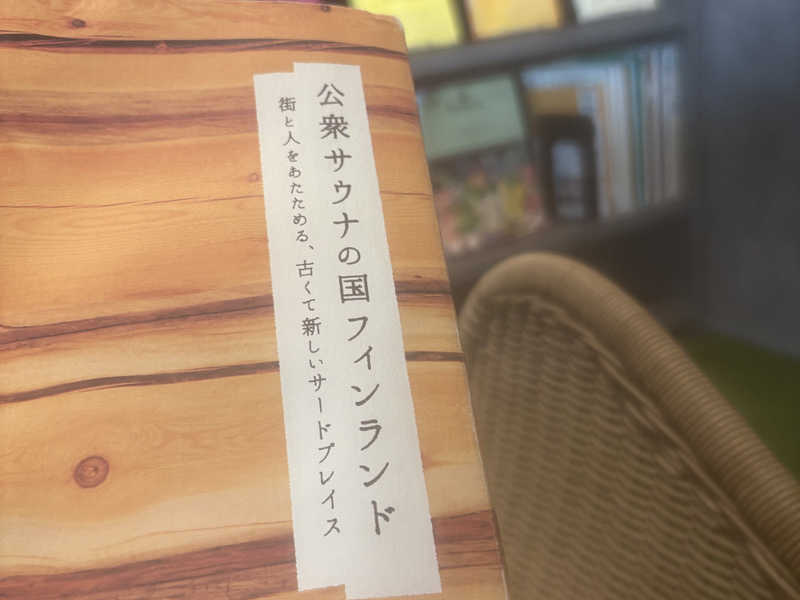 公衆サウナの国フィンランド
街と人をあたためる、古くて新しいサードプレイス